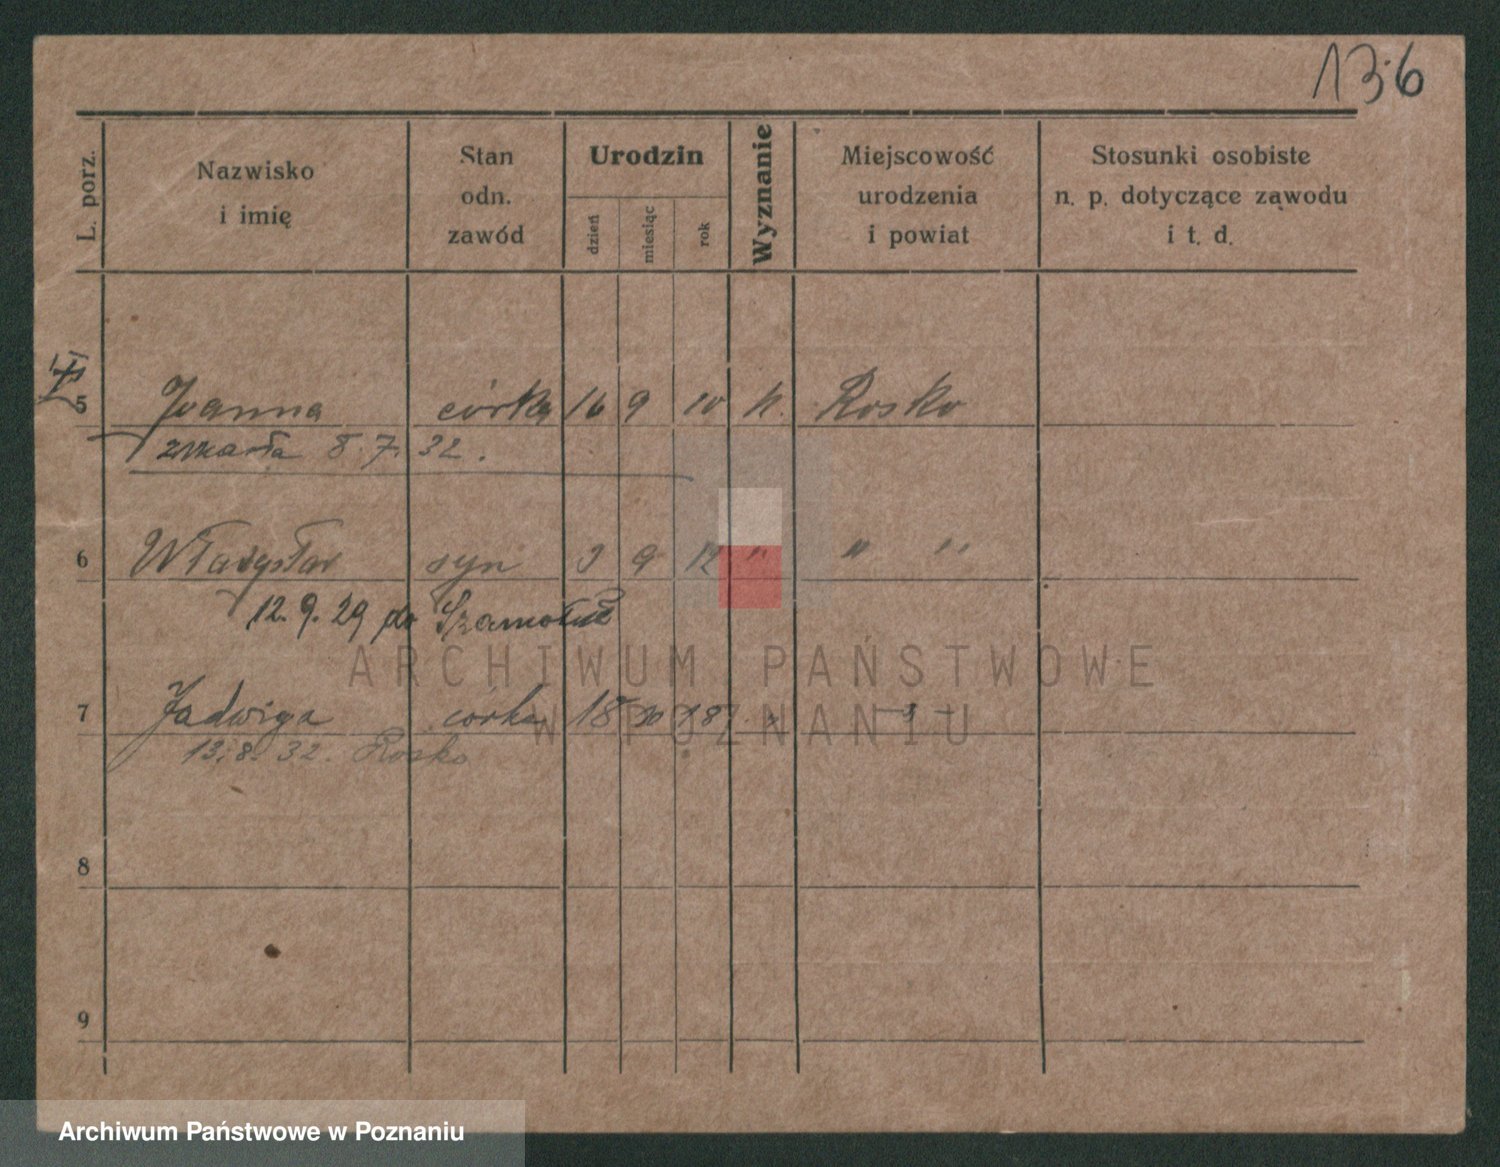 136
L. porz.
Nazwisko
i imię
Stan
odn.
zawód
Urodzin
dzień
miesiąc
rok
Wyznanie
Miejscowość
urodzenia
i powiat
Stosunki osobiste
n. p. dotyczące zawodu
i t. d.
5 Joanna córka 16 9 10 k. Rosko
zmarła 8. 7. 32.
6 Władysław syn 3 9 12 " " "
12. 9. 29 do Szamotuł
7 Jadwiga córka 18 10 18
13. 8. 32. Rosko
8
9
ARCHIWUM PAŃSTWOWE
W POZNANIU
Archiwum Państwowe w Poznaniu